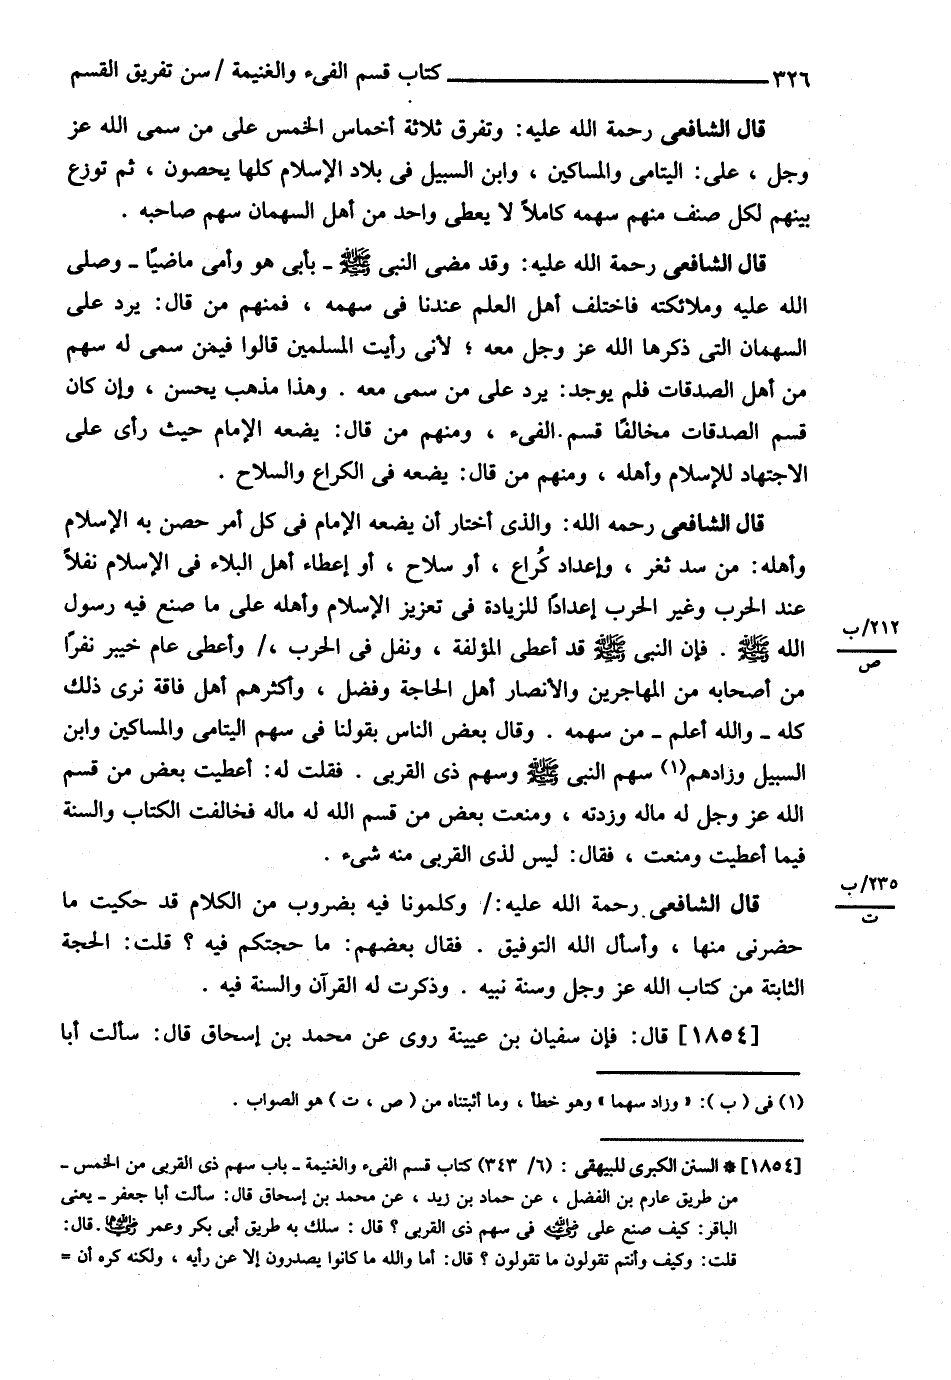 ٣٢٦ ــــــــــــــــــــــ كتاب قسم الفىء والغنيمة / سن تفريق القسم
قال الشافعى رحمة الله عليه: وتفرق ثلاثة أخماس الخمس على من سمى الله عز
وجل ، على: اليتامى والمساكين ، وابن السبيل فى بلاد الإسلام كلها يحصون ، ثم توزع
بينهم لكل صنف منهم سهمه كاملاً لا يعطى واحد من أهل السهمان سهم صاحبه .
قال الشافعى رحمة الله عليه: وقد مضى النبى ﷺ ـ بأبى هو وأمى ماضيًا ـ وصلى
الله عليه وملائكته فاختلف أهل العلم عندنا فى سهمه ، فمنهم من قال: يرد على
السهمان التى ذكرها الله عز وجل معه ؛ لأنى رأيت المسلمين قالوا فيمن سمى له سهم
من أهل الصدقات فلم يوجد: يرد على من سمى معه . وهذا مذهب يحسن ، وإن كان
قسم الصدقات مخالفًا قسم الفىء ، ومنهم من قال: يضعه الإمام حيث رأى على
الاجتهاد للإسلام وأهله ، ومنهم من قال: يضعه فى الكراع والسلاح .
قال الشافعى رحمه الله: والذى أختار أن يضعه الإمام فى كل أمر حصن به الإسلام
وأهله: من سد ثغر ، وإعداد كُراع ، أو سلاح ، أو إعطاء أهل البلاء فى الإسلام نفلاً
عند الحرب وغير الحرب إعدادًا للزيادة فى تعزيز الإسلام وأهله على ما صنع فيه رسول
الله ﷺ . فإن النبى ﷺ قد أعطى المؤلفة ، ونفل فى الحرب ،/ وأعطى عام خيبر نفرًا
٢١٢/ب
ص
من أصحابه من المهاجرين والأنصار أهل الحاجة وفضل ، وأكثرهم أهل فاقة نرى ذلك
كله ـ والله أعلم ـ من سهمه . وقال بعض الناس بقولنا فى سهم اليتامى والمساكين وابن
السبيل وزادهم(١) سهم النبى ﷺ وسهم ذى القربى . فقلت له: أعطيت بعض من قسم
الله عز وجل له ماله وزدته ، ومنعت بعض من قسم الله له ماله فخالفت الكتاب والسنة
فيما أعطيت ومنعت ، فقال: ليس لذى القربى منه شىء .
قال الشافعى رحمة الله عليه:/ وكلمونا فيه بضروب من الكلام قد حكيت ما
٢٣٥/ب
ت
حضرنى منها ، وأسأل الله التوفيق . فقال بعضهم: ما حجتكم فيه ؟ قلت: الحجة
الثابتة من كتاب الله عز وجل وسنة نبيه . وذكرت له القرآن والسنة فيه .
[١٨٥٤] قال: فإن سفيان بن عيينة روى عن محمد بن إسحاق قال: سألت أبا
(١) فى ( ب ): « وزاد سهما » وهو خطأ ، وما أثبتناه من ( ص ، ت ) هو الصواب .
[١٨٥٤] * السنن الكبرى للبيهقى : (٦/ ٣٤٣) كتاب قسم الفىء والغنيمة ـ باب سهم ذى القربى من الخمس ـ
من طريق عارم بن الفضل ، عن حماد بن زيد ، عن محمد بن إسحاق قال: سألت أبا جعفر ـ يعنى
الباقر: كيف صنع على رضي الله عنه فى سهم ذى القربى ؟ قال : سلك به طريق أبى بكر وعمر رضي الله عنهما . قال:
قلت: وكيف وأنتم تقولون ما تقولون ؟ قال: أما والله ما كانوا يصدرون إلا عن رأيه ، ولكنه كره أن =